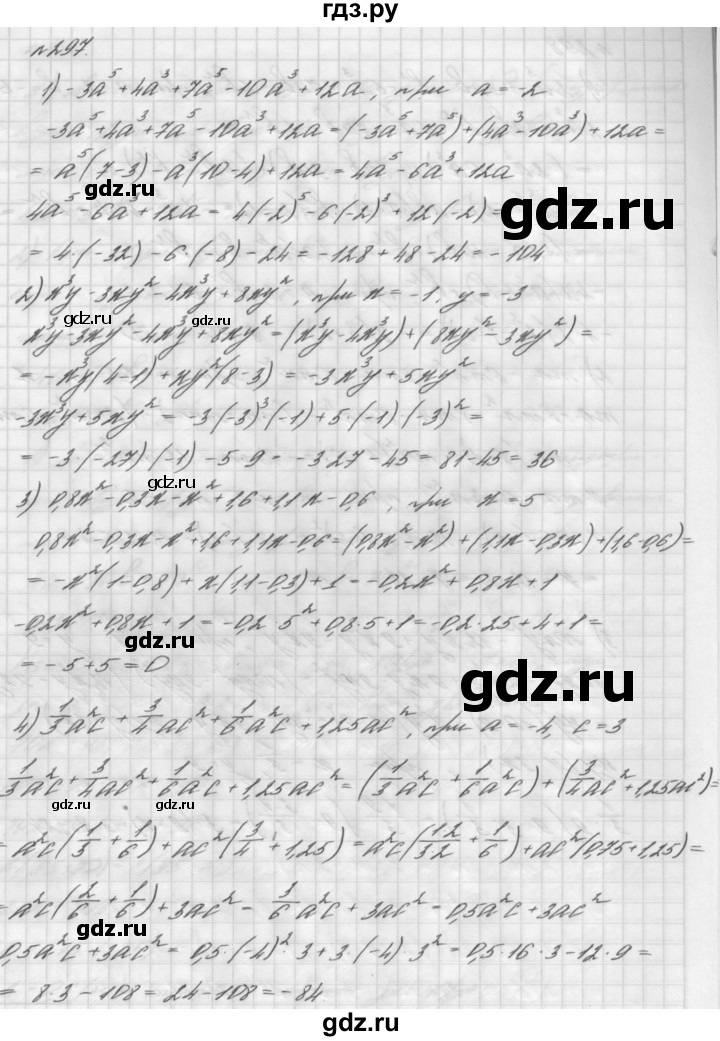 гдз.ру
№297.
1) -3a⁵+4a³+7a⁵-10a³+12a, при a=-2
-3a⁵+4a³+7a⁵-10a³+12a=(-3a⁵+7a⁵)+(4a³-10a³)+12a=
= a⁵(7-3)-a³(10-4)+12a=4a⁵-6a³+12a
gdz.ru
gdz.ru
4a⁵-6a³+12a=4(-2)⁵-6(-2)³+12(-2)=
= 4·(-32)-6·(-8)-24=-128+48-24=-104
2) x³y-3xy²-4x³y+8xy², при x=-1, y=-3
gdz.ru gdz.ru
x³y-3xy²-4x³y+8xy²=(x³y-4x³y)+(8xy²-3xy²)=
= -x³y(4-1)+xy²(8-3) = -3x³y+5xy²
-3x³y+5xy²= -3(-3)³·(-1)+5·(-1)·(-3)²=
= -3·(-27)·(-1)-5·9=-3·27-45=81-45=36
gdz.ru
3) 0,8x²-0,3x-x²+1,6+1,1x-0,6, при x=5
0,8x²-0,3x-x²+1,6+1,1x-0,6=(0,8x²-x²)+(1,1x-0,3x)+(1,6-0,6)=
= -x²(1-0,8)+x(1,1-0,3)+1=-0,2x²+0,8x+1
-0,2x²+0,8x+1=-0,2·5²+0,8·5+1=-0,2·25+4+1=
gdz.ru
= -5+5=0
gdz.ru
4) 1/3a²c+3/4ac²+1/6a²c+1,25ac², при a=-4, c=3
1/3a²c+3/4ac²+1/6a²c+1,25ac²=(1/3a²c+1/6a²c)+(3/4ac²+1,25ac²)=
gdz.ru gdz.ru
= a²c(1/3+1/6)+ac²(3/4+1,25)=a²c(12/32+1/6)+ac²(0,75+1,25)=
= a²c(2/6+1/6)+3ac²=3/6a²c+3ac²=0,5a²c+3ac²
0,5a²c+3ac²=0,5·(-4)²·3+3·(-4)·3²=0,5·16·3-12·9=
= 8·3-108=24-108=-84
gdz.ru